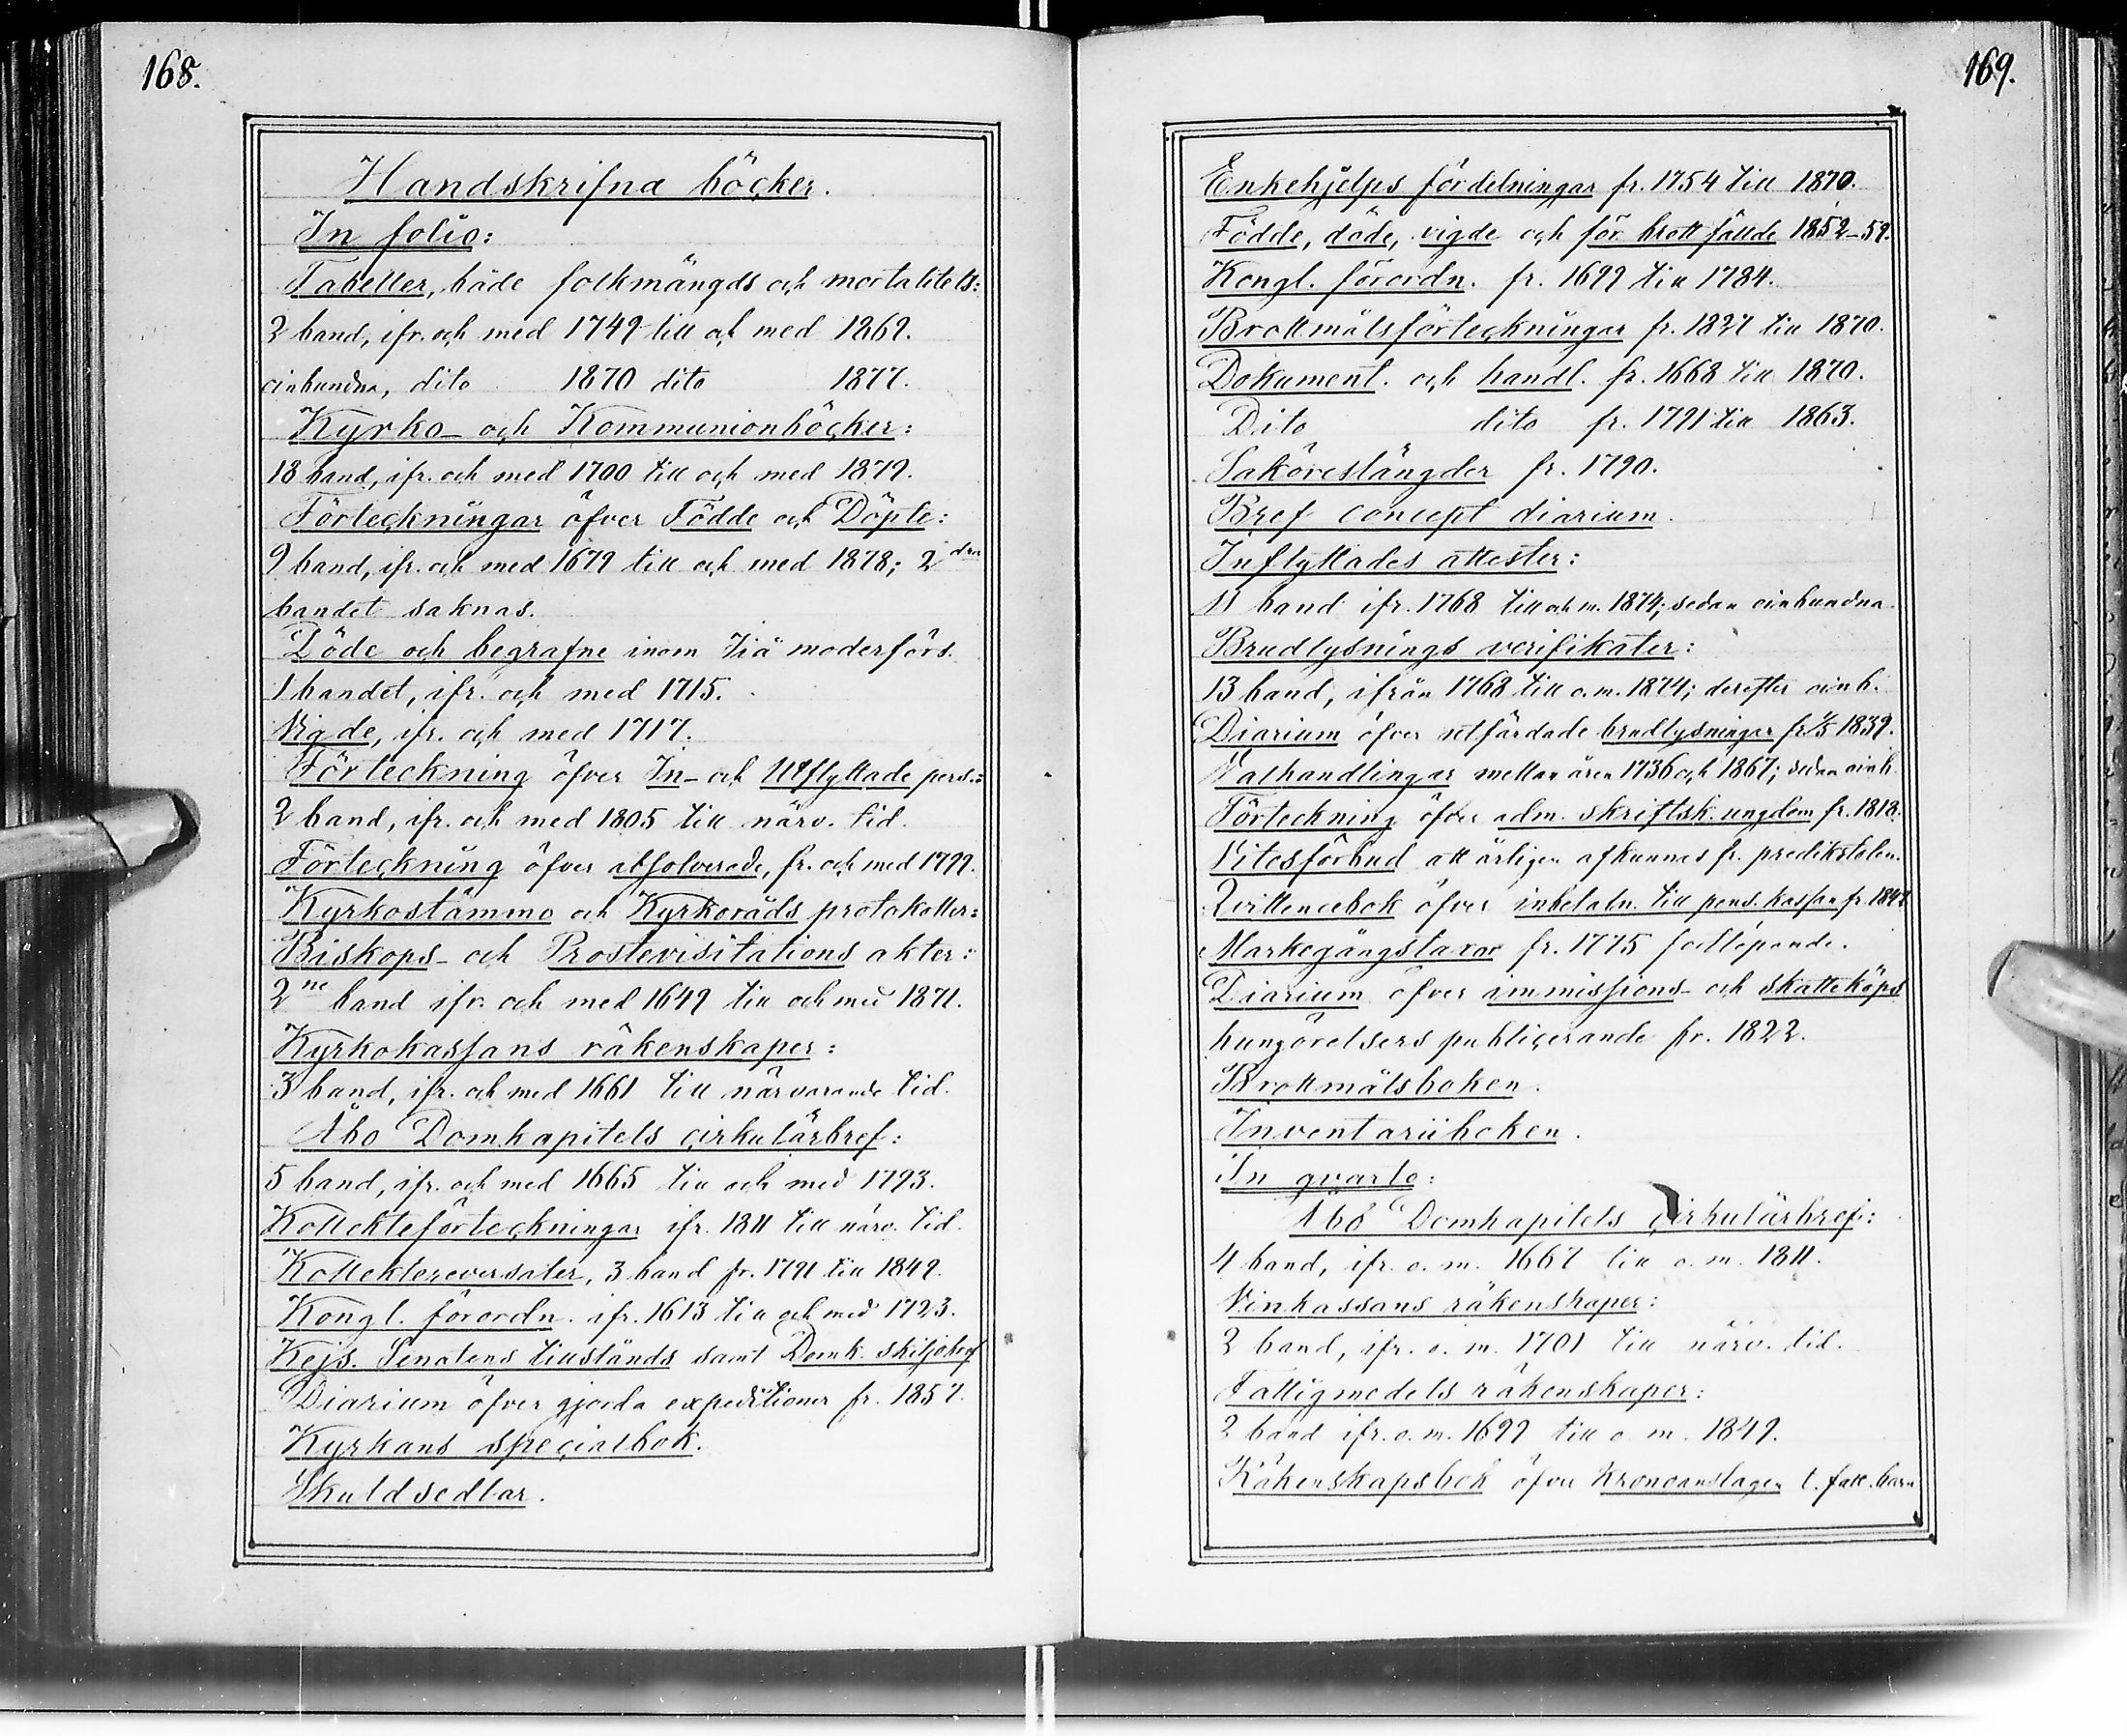 168.
Handskrifna böcker.
In folio:
Tabeller, både folkmängds och mortalitets:
2 band, ifr. och med 1749 till och med 1869.
oinbundna, dito 1870 dito 1877.
Kyrko- och Kommunionböcker:
18 band, ifr. och med 1700 till och med 1879.
Förteckningar öfver Födde och Döpte:
9 band, ifr. och med 1679 till och med 1878; 2dra
bandet saknas.
Döde och begrafne inom moderförs.
1 bandet, ifr. och med 1715.
Vigde, ifr. och med 1717.
Förteckning öfver In- och Utflyttade pers.:
2 band, ifr. och med 1805 till närv. tid.
Förteckning öfver absolverade, fr. och med 1799.
Kyrkostämmo och Kyrkoråds protokoller:
Biskops- och Prostevisitations akter:
2ne band ifr. och med 1649 till och med 1871.
Kyrkokassans räkenskaper:
3 band, ifr. och med 1661 till närvarande tid.
Åbo Domkapitels cirkulärbref:
5 band, ifr. och med 1665 till och med 1793.
Kollekteförteckningar ifr. 1811 till närv. tid.
Kollektereversaler, 3 band fr. 1791 till 1849.
Kongl. förordn. ifr. 1613 till och med 1723.
Kejs. Senatens tillstånds samt Domk. skiljobref
Diarium öfver gjorda expeditioner fr. 1857.
Kyrkans specialbok.
Skuldsedlar.
169.
Enkehjelps fördelningar fr. 1754 till 1870.
Födde, döde, vigde och för brott fällde 1852-59.
Kongl. förordn. fr. 1699 till 1784.
Brottmålsförteckningar fr. 1827 till 1870.
Dokument. och handl. fr. 1668 till 1870.
Dito dito fr. 1791 till 1863.
Saköreslängder fr. 1790.
Bref concept diarium.
Inflyttades attester:
11 band ifr. 1768 till och m. 1874; sedan oinbundna
Brudlysnings verifikater:
13 band, ifrån 1768 till o. m. 1874; derefter oinb.
Diarium öfver utfärdade brudlysningar fr. 1/5 1839.
Valhandlingar mellan åren 1736 och 1867; sedan oinb.
Förteckning öfver adm. skriftsk. ungdom fr. 1818.
Vitesförbud att årligen afkunnas fr. predikstolen.
Qvittencebok öfver inbetaln. till pens. kassan fr.
Markegångstaxor fr. 1775 fortlöpande.
Diarium öfver immissions- och skatteköps
kungörelsers publicerande fr. 1822.
Brottmålsboken.
Inventariiboken.
In qvarto:
Åbo Domkapitels cirkulärbref:
4 band, ifr. o. m. 1667 till o. m. 1811.
Vinkassans räkenskaper:
2 band, ifr. o. m. 1701 till närv. tid.
Fattigmedels räkenskaper:
2 band ifr. o. m. 1699 till o. m. 1849.
Räkenskapsbok öfver Kronoanslagen t. fatt. barn